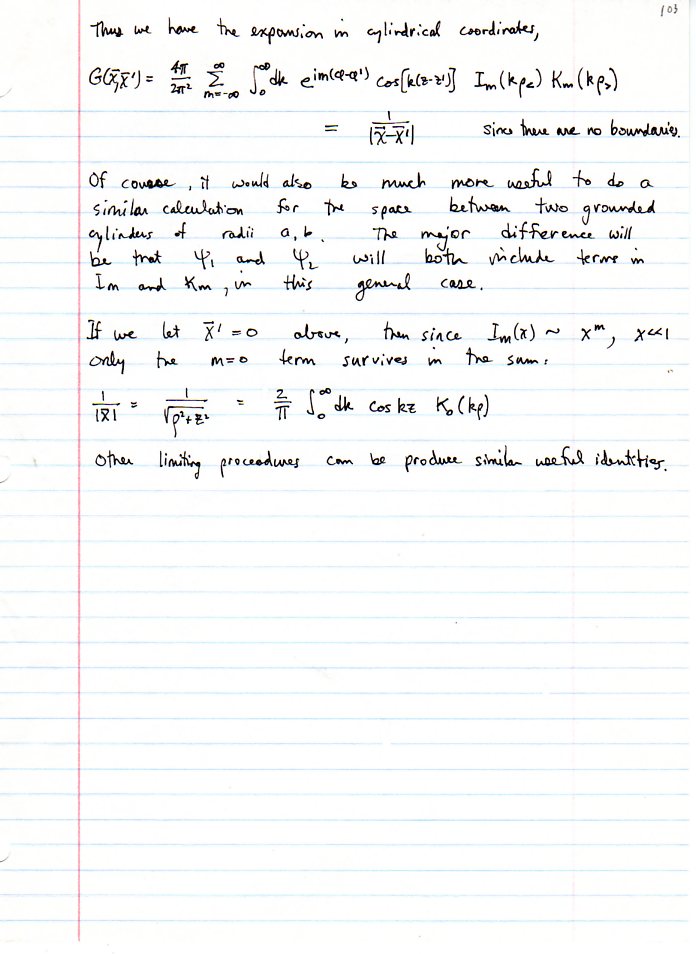 103
Thus we have the expansion in cylindrical coordinates,
G(x⃗,x⃗') = 4π/2π² ∑_{m=-∞}^{∞} ∫₀^∞ dk e^{im(φ-φ')} cos[k(z-z')] I_m(kρ_<) K_m(kρ_>)
= 1/|x⃗-x⃗'| since there are no boundaries.
Of course, it would also be much more useful to do a
similar calculation for the space between two grounded
cylinders of radii a, b. The major difference will
be that ψ₁ and ψ₂ will both include terms in
I_m and K_m, in this general case.
If we let x⃗' = 0 above, then since I_m(x) ~ x^m, x<<1
only the m=0 term survives in the sum:
1/|x⃗| = 1/√(ρ²+z²) = 2/π ∫₀^∞ dk cos kz K₀(kρ)
Other limiting proceedures can be produce similar useful identities.